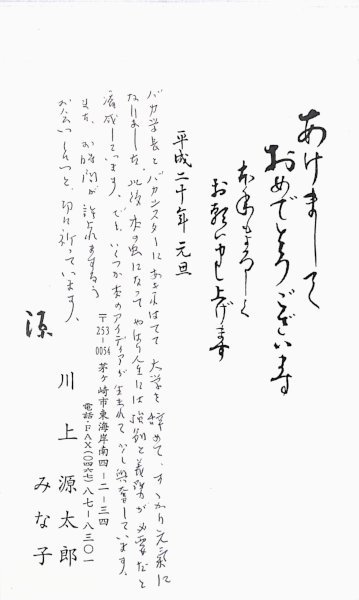 あけまして
おめでとうございます
本年もよろしく
お願い申し上げます
平成二十年 元旦
バカ学長とバカンスターにあきはてて 大学を辞めて、すっかり元気に
なりました 以後 本の虫になって やはり人生には 規則と義務が必要だと
痛感しています。でも、いくつか本のアイディアが生まれて 少し興奮しています。
また、お時間が許しますなら
お会いしたいと、切に祈っています。
〒253-0054 茅ヶ崎市東海岸南四-二-三四
電話・FAX(〇四六七)八七-八三〇一
源
川上 源太郎
みな子